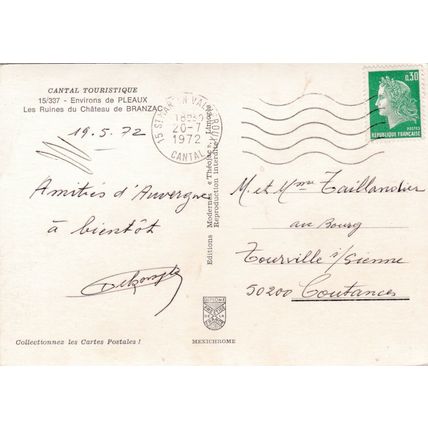 CANTAL TOURISTIQUE
15/337 - Environs de PLEAUX
Les Ruines du Château de BRANZAC
19.5.72
Amitiés d'Auvergne
à bientôt
Collectionnez les Cartes Postales !
15 ST MARTIN VALMEROUX
18H30
20-7
1972
CANTAL
Editions Modernes « Théojac », Limoges
Reproduction interdite
MEXICHROME
0,30
POSTES
REPUBLIQUE FRANÇAISE
M. et Mme Taillandier
au Bourg
Tourville s/Sienne
50200 Coutances